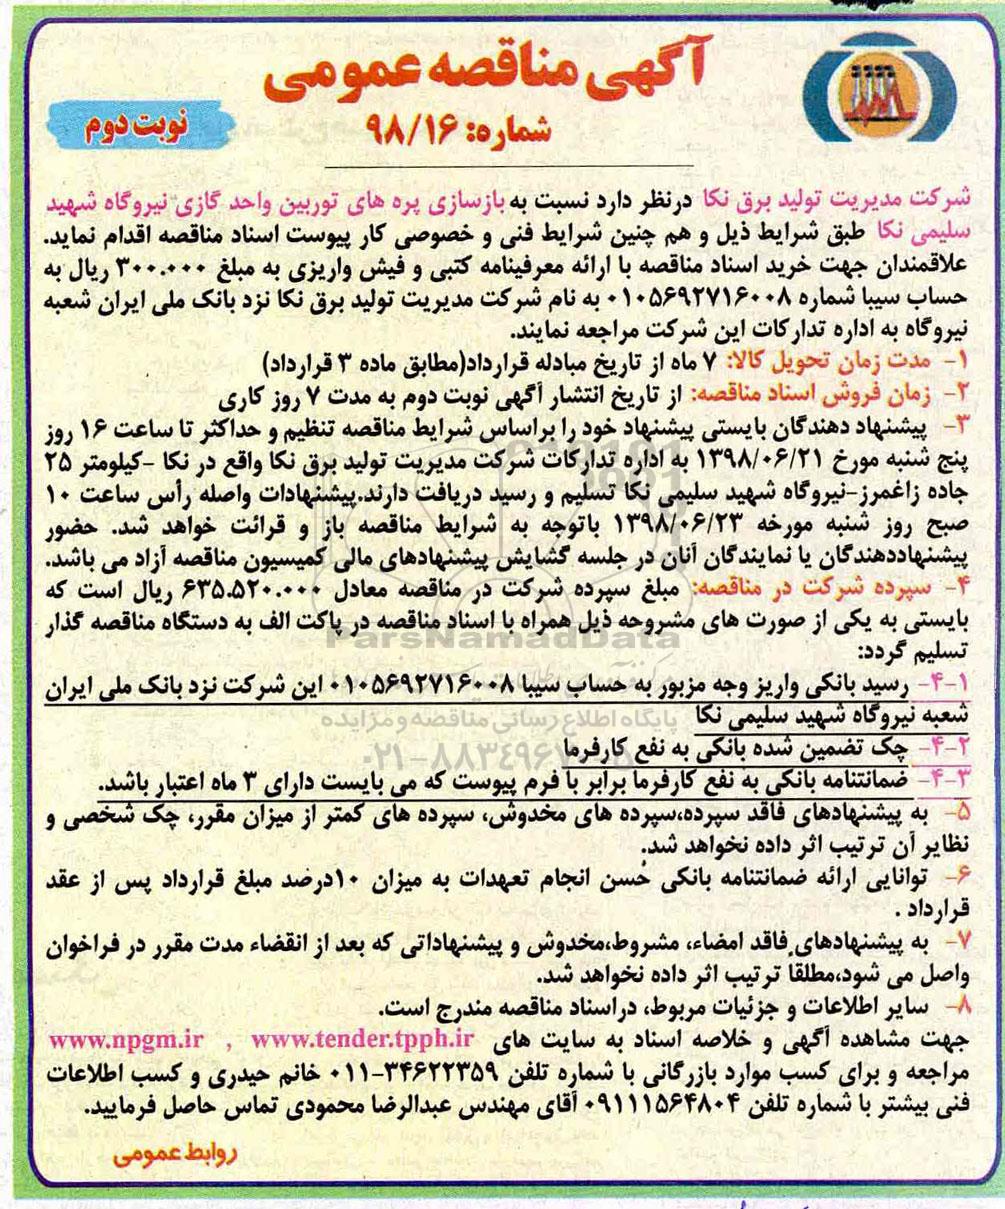 آگهی مناقصه عمومی
شماره: ۹۸/۱۶
نوبت دوم
شرکت مدیریت تولید برق نکا درنظر دارد نسبت به بازسازی پره های توربین واحد گازی نیروگاه شهید
سلیمی نکا طبق شرایط ذیل و هم چنین شرایط فنی و خصوصی کار پیوست اسناد مناقصه اقدام نماید.
علاقمندان جهت خرید اسناد مناقصه با ارائه معرفینامه کتبی و فیش واریزی به مبلغ ۳۰۰.۰۰۰ ریال به
حساب سیبا شماره ۰۱۰۵۶۹۲۷۱۶۰۰۸ به نام شرکت مدیریت تولید برق نکا نزد بانک ملی ایران شعبه
نیروگاه به اداره تدارکات این شرکت مراجعه نمایند.
۱- مدت زمان تحویل کالا: ۷ ماه از تاریخ مبادله قرارداد(مطابق ماده ۳ قرارداد)
۲- زمان فروش اسناد مناقصه: از تاریخ انتشار آگهی نوبت دوم به مدت ۷ روز کاری
۳- پیشنهاد دهندگان بایستی پیشنهاد خود را براساس شرایط مناقصه تنظیم و حداکثر تا ساعت ۱۶ روز
پنج شنبه مورخ ۱۳۹۸/۰۶/۲۱ به اداره تدارکات شرکت مدیریت تولید برق نکا واقع در نکا -کیلومتر ۲۵
جاده زاغمرز-نیروگاه شهید سلیمی نکا تسلیم و رسید دریافت دارند.پیشنهادات واصله رأس ساعت ۱۰
صبح روز شنبه مورخه ۱۳۹۸/۰۶/۲۳ باتوجه به شرایط مناقصه باز و قرائت خواهد شد. حضور
پیشنهاددهندگان یا نمایندگان آنان در جلسه گشایش پیشنهادهای مالی کمیسیون مناقصه آزاد می باشد.
۴- سپرده شرکت در مناقصه: مبلغ سپرده شرکت در مناقصه معادل ۶۳۵.۵۲۰.۰۰۰ ریال است که
بایستی به یکی از صورت های مشروحه ذیل همراه با اسناد مناقصه در پاکت الف به دستگاه مناقصه گذار
تسلیم گردد:
۴-۱- رسید بانکی واریز وجه مزبور به حساب سیبا ۰۱۰۵۶۹۲۷۱۶۰۰۸ این شرکت نزد بانک ملی ایران
شعبه نیروگاه شهید سلیمی نکا
۴-۲- چک تضمین شده بانکی به نفع کارفرما
۴-۳- ضمانتنامه بانکی به نفع کارفرما برابر با فرم پیوست که می بایست دارای ۳ ماه اعتبار باشد.
۵- به پیشنهادهای فاقد سپرده،سپرده های مخدوش، سپرده های کمتر از میزان مقرر، چک شخصی و
نظایر آن ترتیب اثر داده نخواهد شد.
۶- توانایی ارائه ضمانتنامه بانکی حُسن انجام تعهدات به میزان ۱۰درصد مبلغ قرارداد پس از عقد
قرارداد .
۷- به پیشنهادهای فاقد امضاء، مشروط،مخدوش و پیشنهاداتی که بعد از انقضاء مدت مقرر در فراخوان
واصل می شود،مطلقاً ترتیب اثر داده نخواهد شد.
۸- سایر اطلاعات و جزئیات مربوط، دراسناد مناقصه مندرج است.
جهت مشاهده آگهی و خلاصه اسناد به سایت های www.tender.tpph.ir , www.npgm.ir
مراجعه و برای کسب موارد بازرگانی با شماره تلفن ۳۴۶۲۲۳۵۹-۰۱۱ خانم حیدری و کسب اطلاعات
فنی بیشتر با شماره تلفن ۰۹۱۱۱۵۶۴۸۰۴ آقای مهندس عبدالرضا محمودی تماس حاصل فرمایید.
روابط عمومی
ParsNamadData
پایگاه اطلاع رسانی مناقصه و مزایده